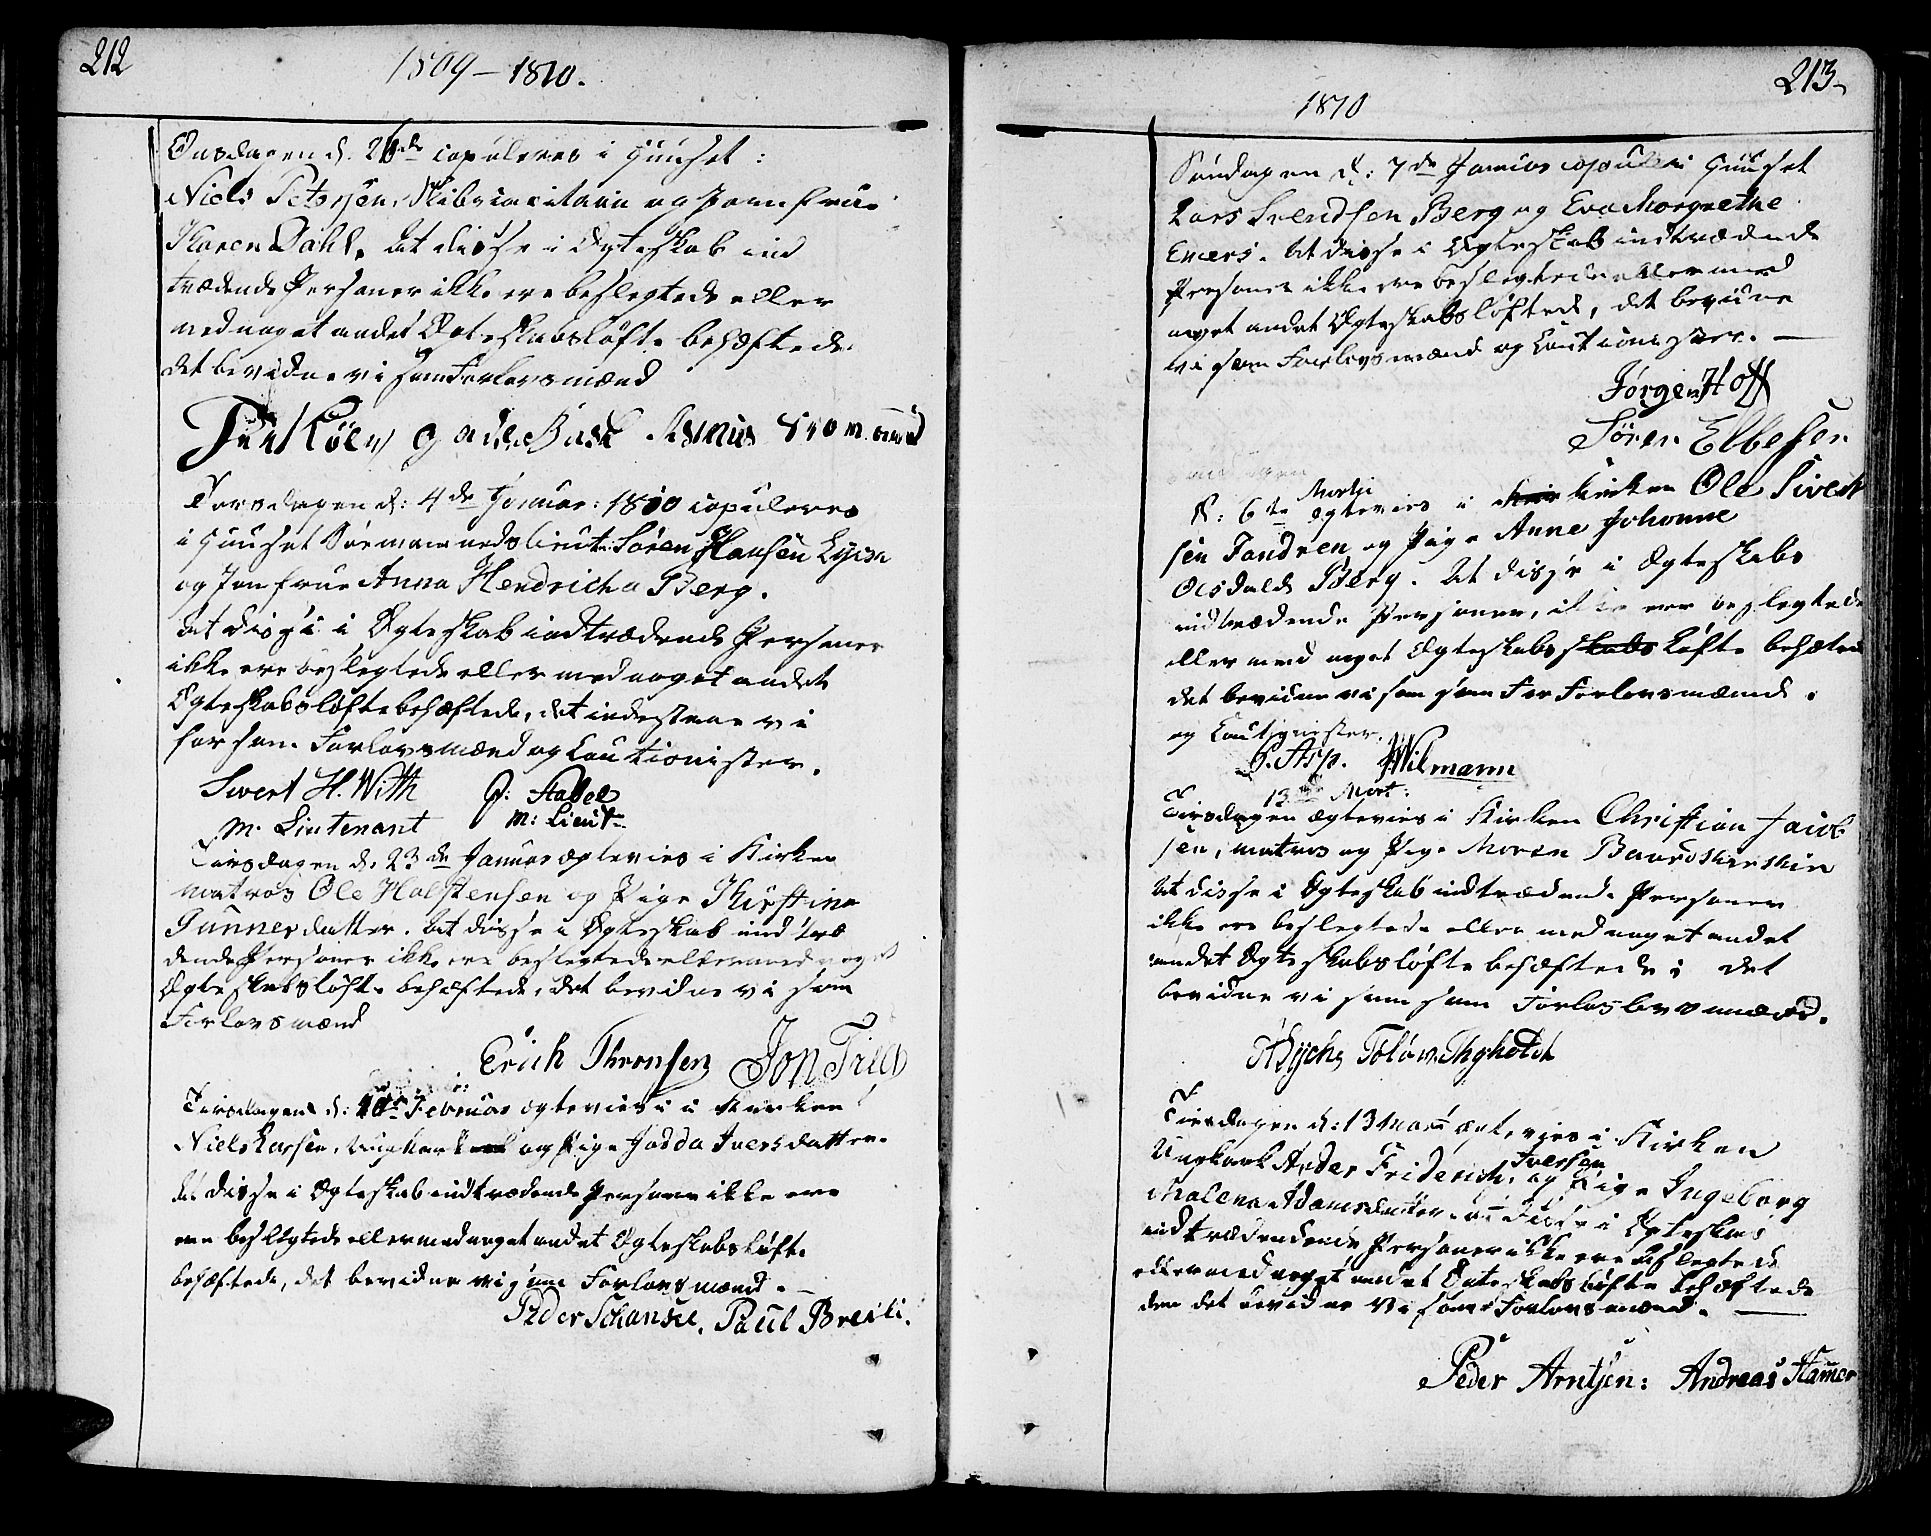 212
1809 – 1810.
Onsdagen d. 26de copuleres i Huuset:
Niels Petersen, Skibscapitain og Jomfrue
Karen Dahl. At disse i Ægteskab ind
trædende Personer ikke ere beslegtede eller
med noget andet Ægteskabsløfte behæftede
det bevidne vi som Forlovsmænd
Torsdagen d: 4de Januar: 1810 copuleres
i Huuset Søren Hansen Lycke
og Jomfrue Anna Hendricha Berg.
At disse i Ægteskab indtrædende Personer
ikke ere beslegtede eller med noget andet
Ægteskabsløfte behæftede, det indestaae vi
for som Forlovsmænd og Cautionister.
Sivert H. With P: Stabel
M. Lieutenant M: Lieut:
Tirsdagen d. 23de Januar ægtevies i Kirken
matros Ole Holstensen og Pige Kirstina
Gunnersdatter. At disse i Ægteskab indtræ
dende Personer ikke ere beslegtede eller med noget
Ægteskabsløfte behæftede, det bevidne vi som
Forlovsmænd
Erich Thronsen Jon Trea
Tirsdagen d: Februar ægtevies i Kirken
Niels Larsen, Ungkarl og Pige Jodda Iversdatter.
At disse i Ægteskab indtrædende Personer ikke ere
ere beslegtede eller med noget andet Ægteskabsløfte
behæftede, det bevidne vi som Forlovsmænd. –
Peder Schanke. Paul Breili.
213.
1810
Søndagen d: 7de Januar copuleres i Huuset
Lars Svendsen Berg og Eva Margrethe
Eners. At disse i Ægteskab indtrædende
Personer ikke ere beslegtede eller med
noget andet Ægteskabsløftede, det bevidne
vi som Forlovsmænd og Cautionister. —
Jørgen Hoff
Søren Ebbesen
D: 6te Martji ægtevies i Kirken Ole Sivert
sen Tondren og Pige Anne Johanne
Olsdatter Berg. At disse i Ægteskabs
indtrædende Personer, ikke ere beslegtede
eller med noget Ægteskabsskabs Løfte behæftede
det bevidne vi som som For Forlovsmænd.
og Cautionister.
P. Asp. Wilmann
13 Mart:
Tirsdagen ægtevies i Kirken Christian Jacob
sen, matros og Pige Maren
At disse i Ægteskab indtrædende Personer
ikke ere beslegtede eller med noget andet
andet Ægteskabsløfte behæftede i det
bevidne vi som som Forlovsmænd.
Tirsdagen d: 13 Mart ægtevies i Kirken
Ungkarl Ander Friderich Iversen og Pige Ingeborg
Malena Adamsdatter. At disse i Ægteskab
indtrædendende Personer ikke ere beslegtede
eller med noget andet Ægteskabsløfte behæftede
den det bevidne vi som Forlovsmænd. —
Peder Arntsen: Andreas Hamer